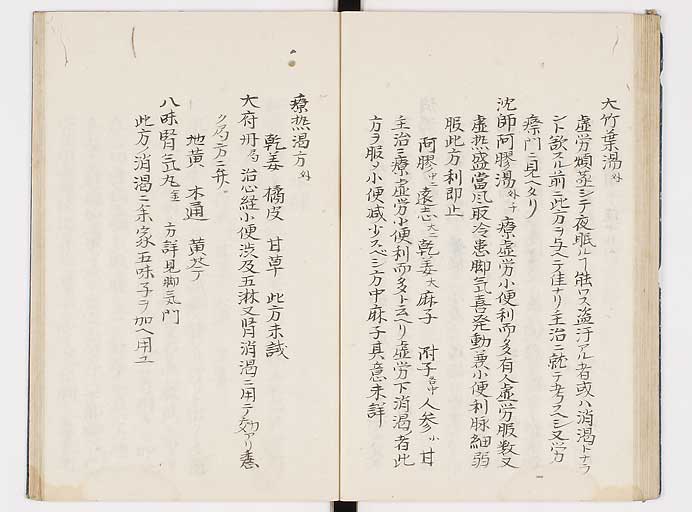 大竹葉湯外
虚労煩悶シテ夜眠ル﹁能ワス盗汗アル者或ハ消渇トナラ
ント欲スル前ニ此方ヲ与ヘテ佳ナリ主治ニ就テ考スヘシ又労
瘵門ニ見ヘタリ
沈師阿膠湯外千 療虚労小便利而多有人虚労服散又
虚熱盛當風取冷患脚氣喜発動兼小便利脉細弱
服此方利即止
阿膠 遠志大 乾姜大 麻子 附子 人参小 甘
主治ニ療虚労小便利而多ト云ヘリ虚労下消渇ノ者此
方ヲ服ノ小便减少スヘシ方中麻子真意未詳
療热渇方外
乾姜 橘皮 甘草 此方未試
大府丹局 治心経小便渋及五淋又腎消渇ニ用テ効アリ
ク局方ニ弁ス
地黄 木通 黄芩
八味腎氣丸金 方詳見脚氣門
此方消渇ニ朱家五味子ヲ加ヘ用ユ